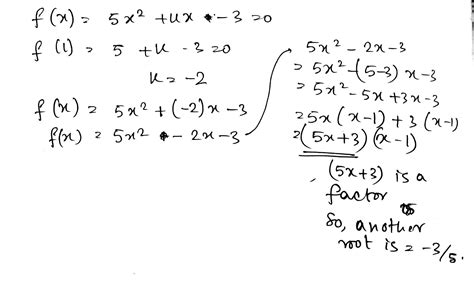 f(x) = 5x² + kx - 3 = 0
f(1) = 5 + k - 3 = 0
k = -2
f(x) = 5x² + (-2)x - 3
f(x) = 5x² - 2x - 3
5x² - 2x - 3
= 5x² - (5-3)x - 3
= 5x² - 5x + 3x - 3
= 5x (x-1) + 3 (x-1)
= (5x+3) (x-1)
(5x+3) is a
factor
So, another
root is = -3/5.